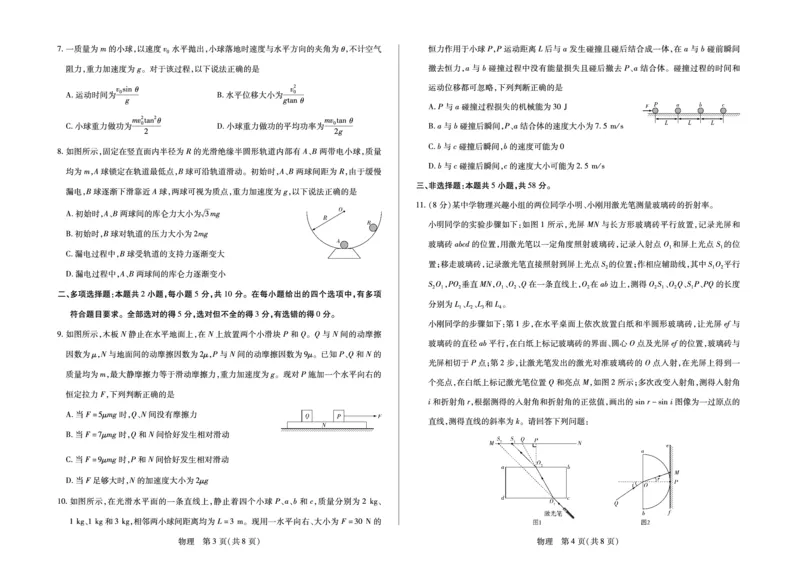 7. 一质量为 m 的小球,以速度 v₀ 水平抛出,小球落地时速度与水平方向的夹角为 θ,不计空气
阻力,重力加速度为 g。对于该过程,以下说法正确的是
A. 运动时间为 v₀sin θ/g
B. 水平位移大小为 v₀²/gtan θ
C. 小球重力做功为 mv₀²tan²θ/2
D. 小球重力做功的平均功率为 mv₀tan θ/2g
8. 如图所示,固定在竖直面内半径为 R 的光滑绝缘半圆形轨道内部有 A、B 两带电小球,质量
均为 m,A 球锁定在轨道最低点,B 球可沿轨道滑动。初始时,A、B 两球间距为 R,由于缓慢
漏电,B 球逐渐下滑靠近 A 球,两球可视为质点,重力加速度为 g,以下说法正确的是
A. 初始时,A、B 两球间的库仑力大小为 √3mg
B. 初始时,B 球对轨道的压力大小为 2mg
C. 漏电过程中,B 球受轨道的支持力逐渐变大
D. 漏电过程中,A、B 两球间的库仑力逐渐变小
O
R
B
A
二、多项选择题:本题共 2 小题,每小题 5 分,共 10 分。在每小题给出的四个选项中,有多项
符合题目要求。全部选对的得 5 分,选对但不全的得 3 分,有选错的得 0 分。
9. 如图所示,木板 N 静止在水平地面上,在 N 上放置两个小滑块 P 和 Q。Q 与 N 间的动摩擦
因数为 μ,N 与地面间的动摩擦因数为 2μ,P 与 N 间的动摩擦因数为 9μ。已知 P、Q 和 N 的
质量均为 m,最大静摩擦力等于滑动摩擦力,重力加速度为 g。现对 P 施加一个水平向右的
恒定拉力 F,下列判断正确的是
A. 当 F=5μmg 时,Q、N 间没有摩擦力
B. 当 F=7μmg 时,Q 和 N 间恰好发生相对滑动
C. 当 F=9μmg 时,P 和 N 间恰好发生相对滑动
D. 当 F 足够大时,N 的加速度大小为 2μg
Q
P
F
N
10. 如图所示,在光滑水平面的一条直线上,静止着四个小球 P、a、b 和 c,质量分别为 2 kg、
1 kg、1 kg 和 3 kg,相邻两小球间距离均为 L=3 m。现用一水平向右、大小为 F=30 N 的
物理 第 3 页(共 8 页)
恒力作用于小球 P,P 运动距离 L 后与 a 发生碰撞且碰后结合成一体,在 a 与 b 碰前瞬间
撤去恒力,a 与 b 碰撞过程中没有能量损失且碰后撤去 P、a 结合体。碰撞过程的时间和
运动位移都可忽略,下列判断正确的是
A. P 与 a 碰撞过程损失的机械能为 30 J
B. a 与 b 碰撞后瞬间,P、a 结合体的速度大小为 7.5 m/s
C. b 与 c 碰撞后瞬间,b 的速度可能为 0
D. b 与 c 碰撞后瞬间,c 的速度大小可能为 2.5 m/s
F P a b c
L L L
三、非选择题:本题共 5 小题,共 58 分。
11. (8 分)某中学物理兴趣小组的两位同学小明、小刚用激光笔测量玻璃砖的折射率。
小明同学的实验步骤如下:如图 1 所示,光屏 MN 与长方形玻璃砖平行放置,记录光屏和
玻璃砖 abcd 的位置,用激光笔以一定角度照射玻璃砖,记录入射点 O₁ 和屏上光点 S₁ 的位
置;移走玻璃砖,记录激光笔直接照射到屏上光点 S₂ 的位置;作相应辅助线,其中 S₁O₂ 平行
S₂O₁,PO₂ 垂直 MN,O₁、O₂、Q 在一条直线上,O₂ 在 ab 边上,测得 O₂S₁、O₂Q、S₁P、PQ 的长度
分别为 L₁、L₂、L₃ 和 L₄。
小刚同学的步骤如下:第 1 步,在水平桌面上依次放置白纸和半圆形玻璃砖,让光屏 ef 与
玻璃砖的直径 ab 平行,在白纸上标记玻璃砖的界面、圆心 O 点及光屏 ef 的位置,玻璃砖与
光屏相切于 P 点;第 2 步,让激光笔发出的激光对准玻璃砖的 O 点入射,在光屏上得到一
个亮点,在白纸上标记激光笔位置 Q 和亮点 M,如图 2 所示;多次改变入射角,测得入射角
i 和折射角 r,根据测得的入射角和折射角的正弦值,画出的 sin r−sin i 图像为一过原点的
直线,测得直线的斜率为 k。请回答下列问题:
M S₂ S₁ Q P N
a O₂ b
d O₁ c
激光笔
图1
e
a
M
r
O P
i
Q
b f
图2
物理 第 4 页(共 8 页)